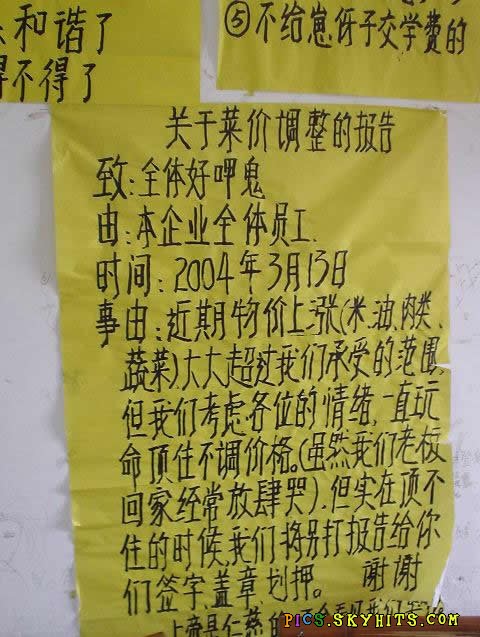 和谐了
得不得了
⑤不给崽伢子交学费的
关于菜价调整的报告
致:全体好呷鬼
由:本企业全体员工.
时间:2004年3月13日
事由:近期物价上涨(米、油、肉类、
蔬菜)大大超过我们承受的范围,
但我们考虑各位的情绪,一直玩
命顶住不调价格。(虽然我们老板
回家经常放肆哭).但实在顶不
住的时候,我们将另打报告给你
们签字、盖章、划押。 谢谢
上帝是仁慈的
PICS.SKYHITS.COM